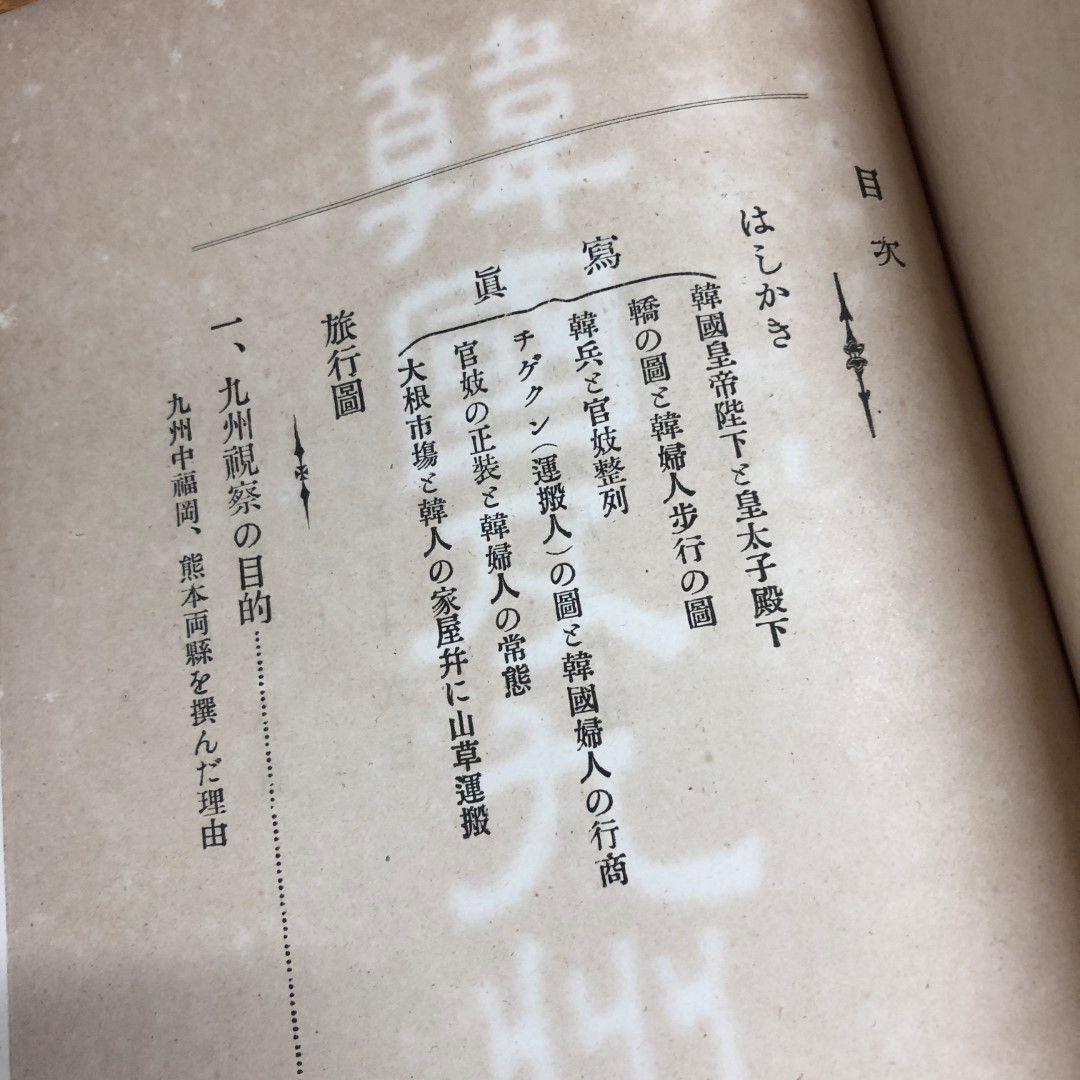 目次
はしかき
寫眞
韓國皇帝陛下と皇太子殿下
轎の圖と韓婦人步行の圖
韓兵と官妓整列
チゲクン(運搬人)の圖と韓國婦人の行商
官妓の正裝と韓婦人の常態
大根市塲と韓人の家屋幷に山草運搬
旅行圖
一、九州視察の目的
九州中福岡、熊本両縣を撰んだ理由